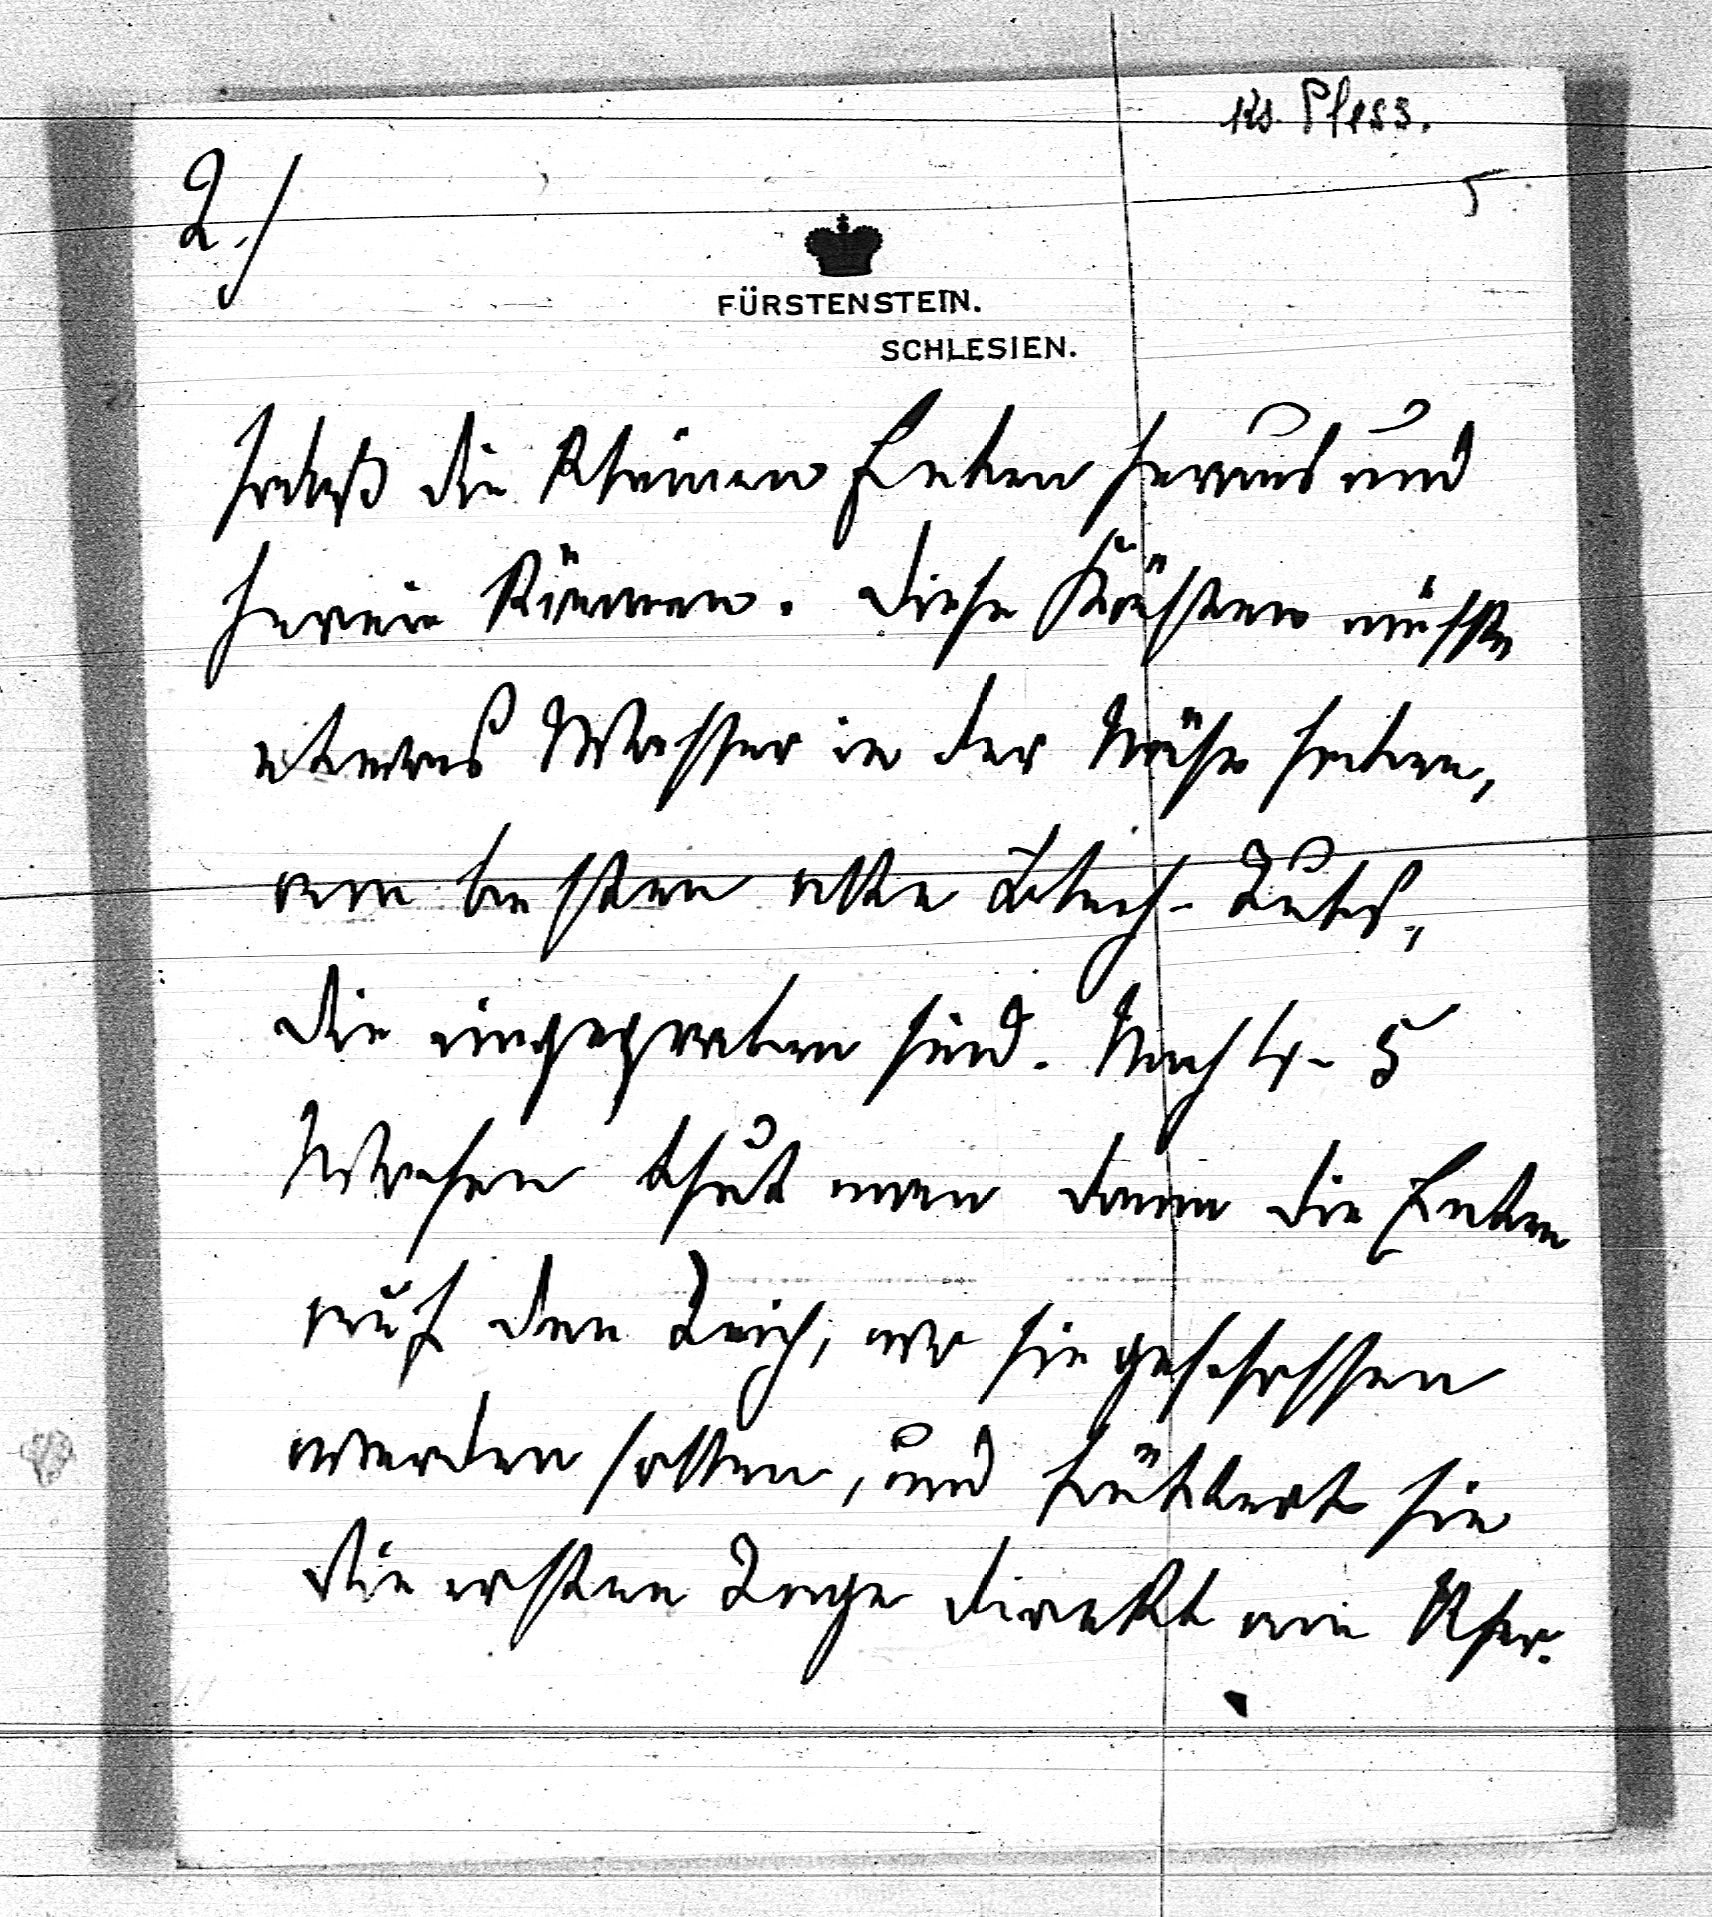 Ks. Pless.
2./
5
FÜRSTENSTEIN.
SCHLESIEN.
sodaß die kleinen Enten heraus und
herein können. Diese Kästen müssen
etwas Wasser in der Nähe haben,
am besten alte Blech-Tubs,
die eingegraben sind. Nach 4-5
Wochen thut man dann die Enten
auf den Teich, wo sie geschossen
werden sollen, und füttert sie
die ersten Tage direkt am